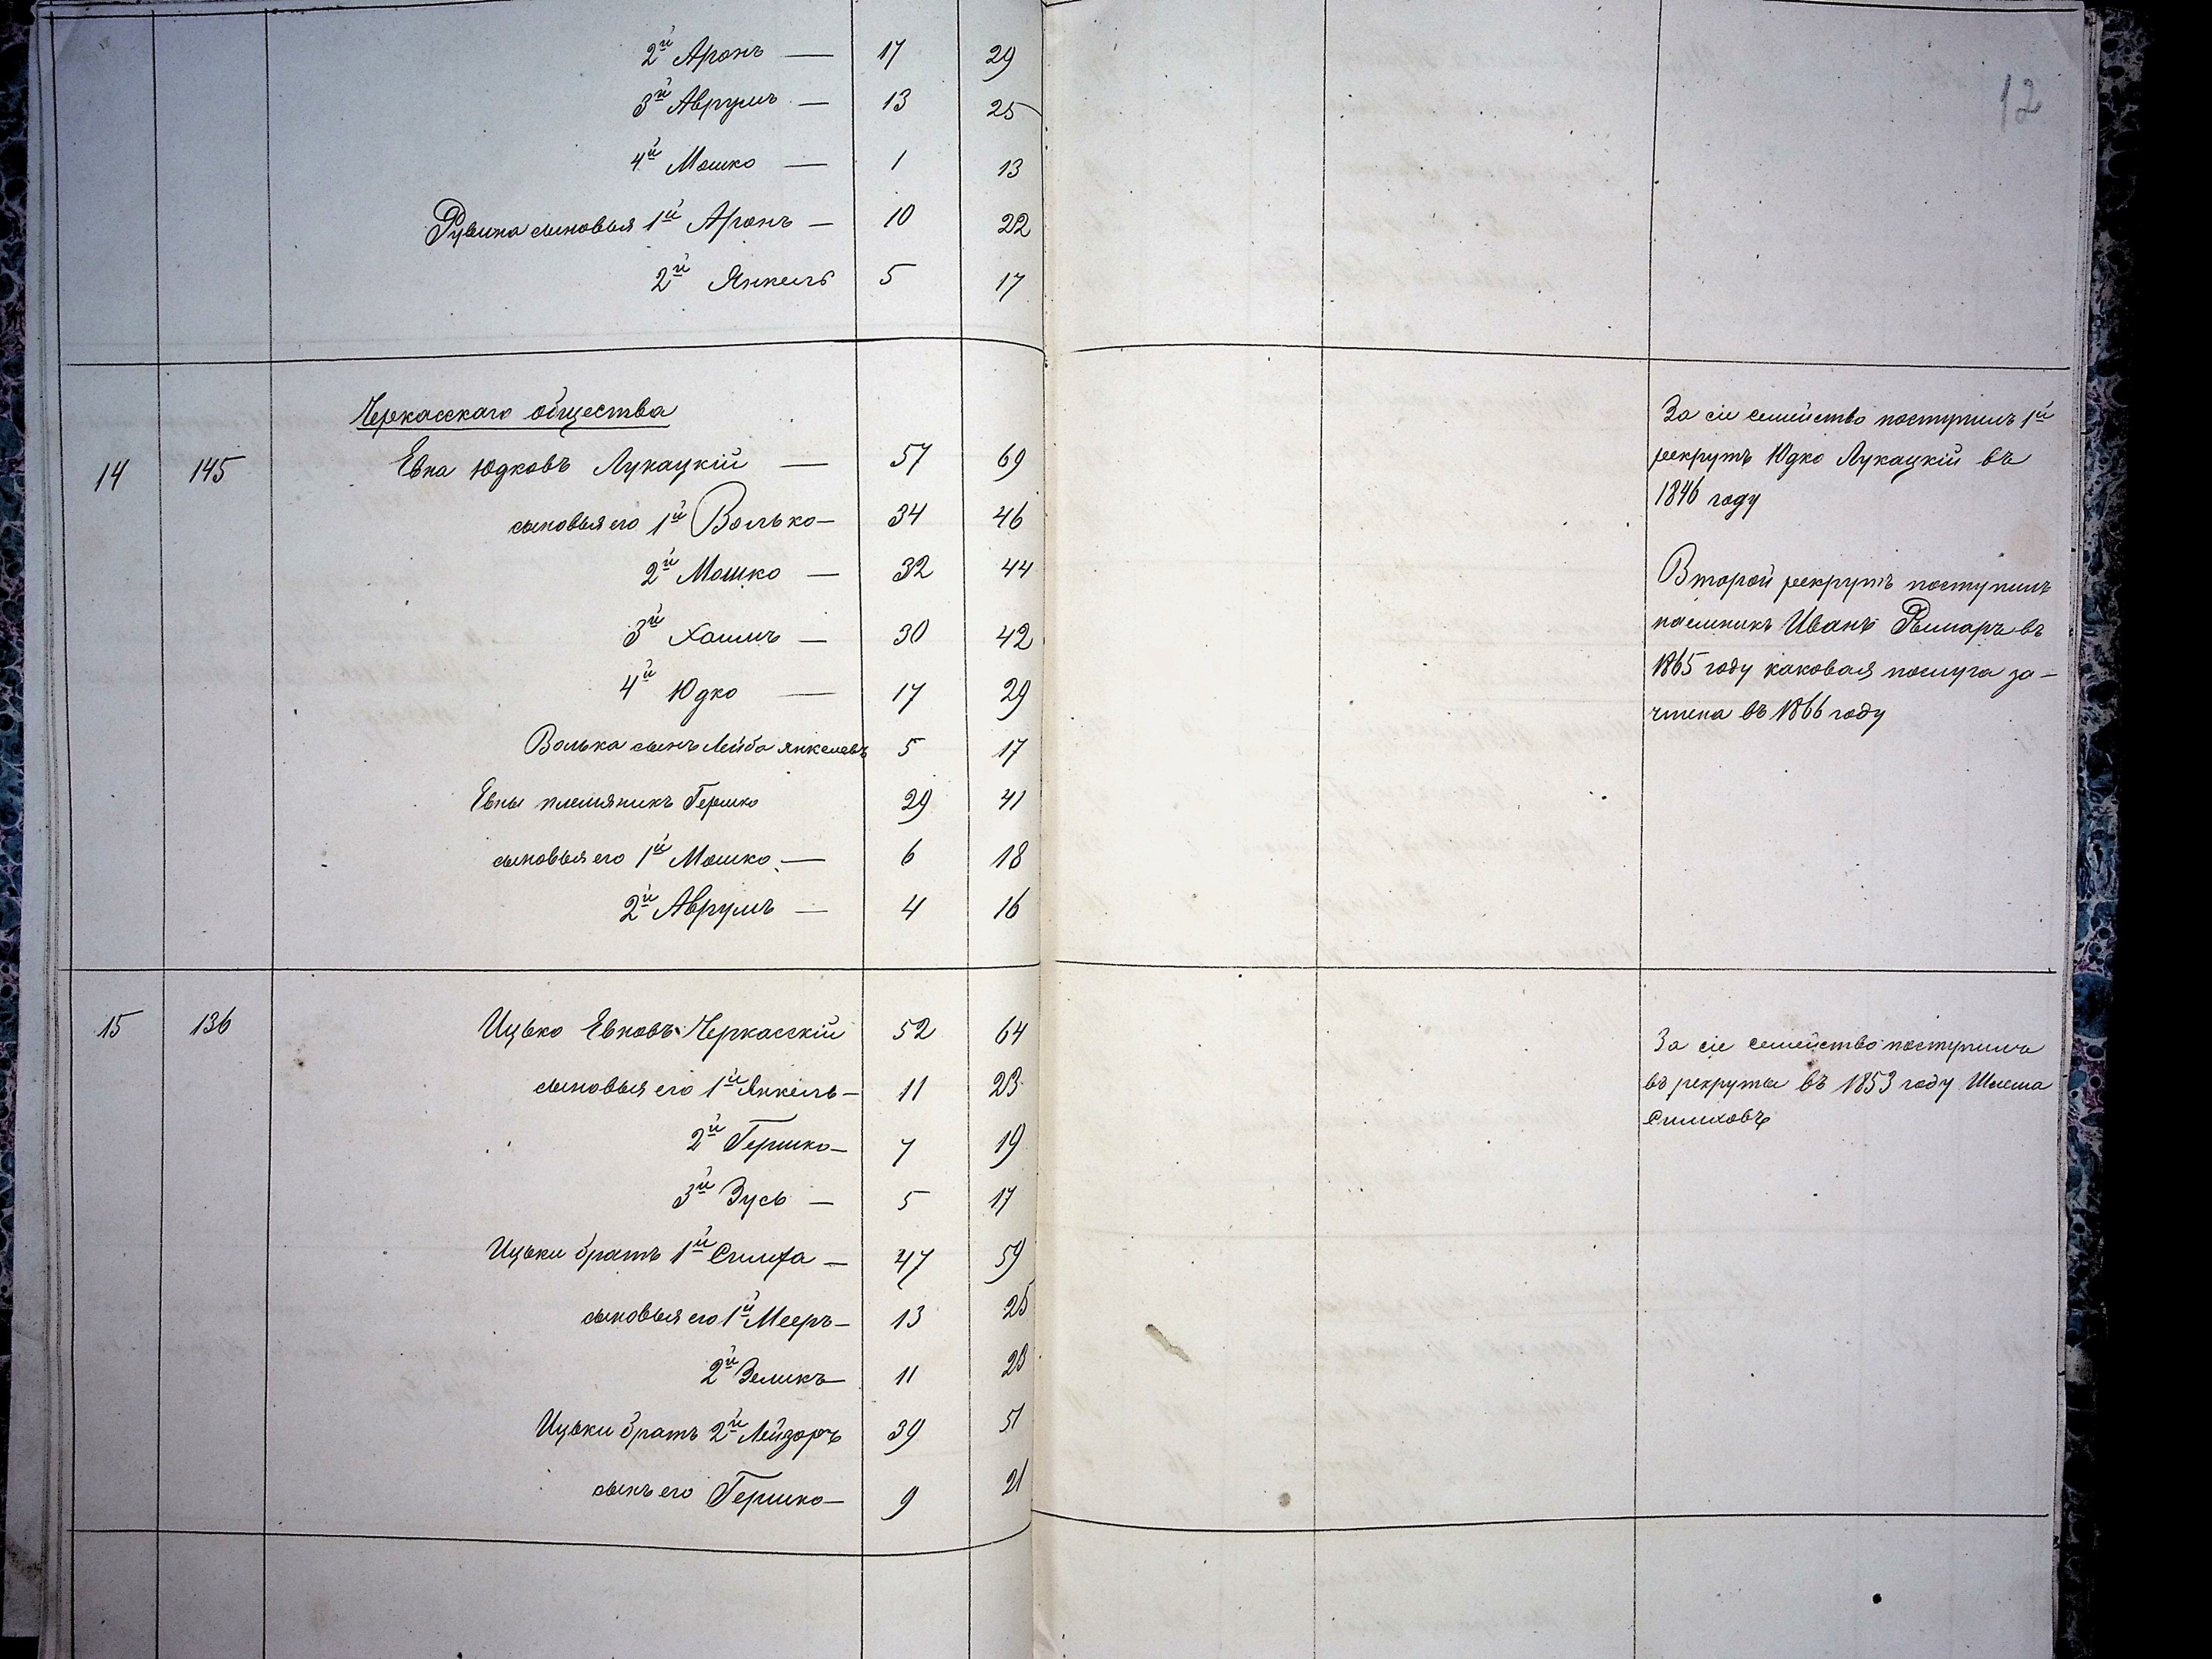 2й Аронъ — 17 29
3й Аврумъ — 13 25
4й Мошко — 1 13
Рувина сыновья 1й Аронъ — 10 22
2й Янкель 5 17
12
Черкасскаго общества
14 145 Евна Юдковъ Лукацкій — 57 69
сыновья его 1й Волько — 34 46
2й Мошко — 32 44
3й Хаимъ — 30 42
4й Юдко — 17 29
Волька сынъ Лейба Янкелевъ 5 17
Евны племяникъ Гершко 29 41
сыновья его 1й Мошко — 6 18
2й Аврумъ — 4 16
За сіе семейство поступилъ 1й
рекрутъ Юдко Лукацкій въ
1846 году
Второй рекрутъ поступилъ
наемникъ Иванъ Рымаръ въ
1865 году каковая послуга за-
чтена въ 1866 году
15 136 Ицько Евновъ Черкасскій 52 64
сыновья его 1й Янкель — 11 23
2й Гершко — 7 19
3й Зусь — 5 17
Ицьки братъ 1й Симха — 47 59
сыновья его 1й Мееръ — 13 25
2й Зеликъ — 11 23
Ицьки братъ 2й Лейзоръ 39 51
сынъ его Гершко — 9 21
За сіе семейство поступилъ
въ рекруты въ 1853 году Шлема
Симховъ